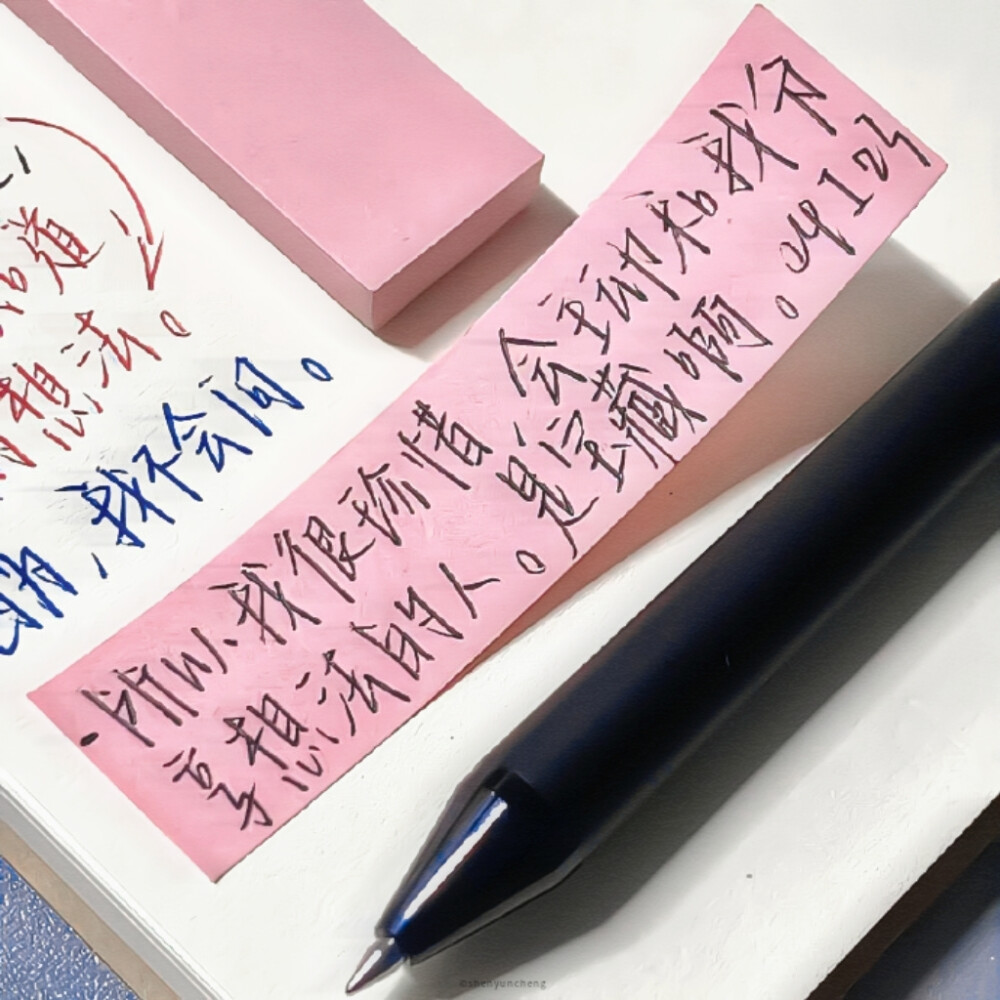 道
想法。
，我不会问。
·所以、我很珍惜 会主动和我分
享想法的人。是宝藏啊。
@shenyuncheng